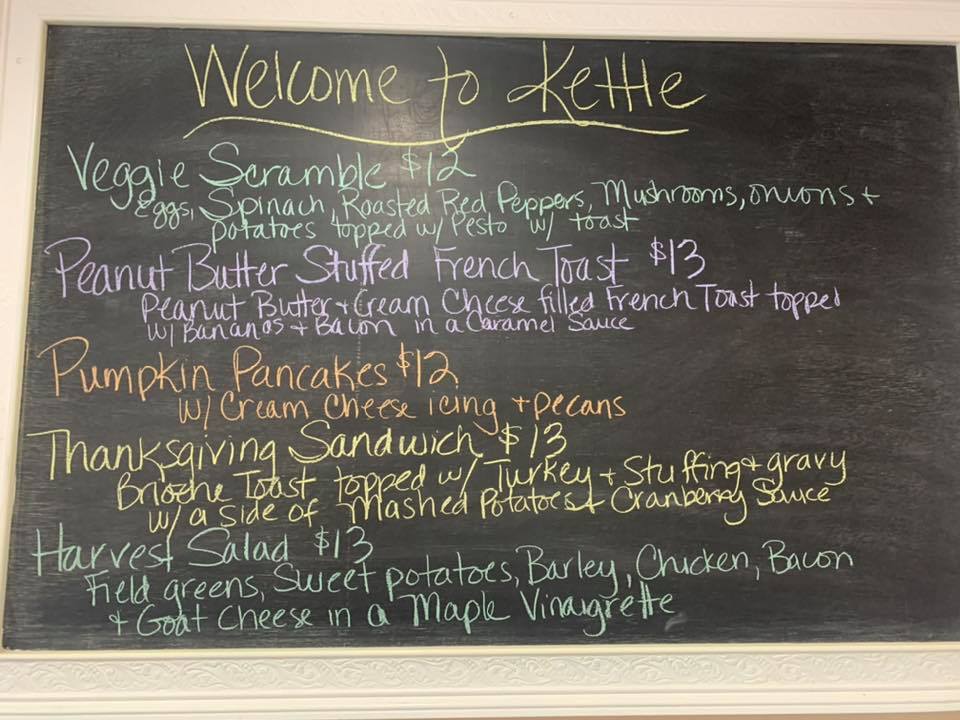 Welcome to Kettle
Veggie Scramble $12
Eggs, Spinach, Roasted Red Peppers, Mushrooms, onions +
potatoes topped w/ Pesto w/ toast
Peanut Butter Stuffed French Toast $13
Peanut Butter + Cream Cheese filled French Toast topped
w/ Bananas + Bacon in a Caramel Sauce
Pumpkin Pancakes $12
w/ Cream Cheese icing + pecans
Thanksgiving Sandwich $13
Brioche Toast topped w/ Turkey + Stuffing + gravy
w/ a side of Mashed Potatoes + Cranberry Sauce
Harvest Salad $13
Field greens, Sweet potatoes, Barley, Chicken, Bacon
+ Goat Cheese in a Maple Vinaigrette